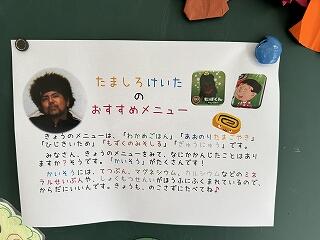 たましろけいた
の
おすすめメニュー
きょうのメニューは、「わかめごはん」「あおのりたまごやき」
「ひじきいため」「もずくのみそしる」「ぎゅうにゅう」です。
みなさん、きょうのメニューをみて、なにかかんじたことはあり
ますか？そうです。「かいそう」がたくさんです！
かいそうには、てつぶん、マグネシウム、カルシウムなどのミネ
ラルせいぶんや、しょくもつせんいがほうふにふくまれているので、
からだにいいんです。きょうも、のこさずたべてね♪